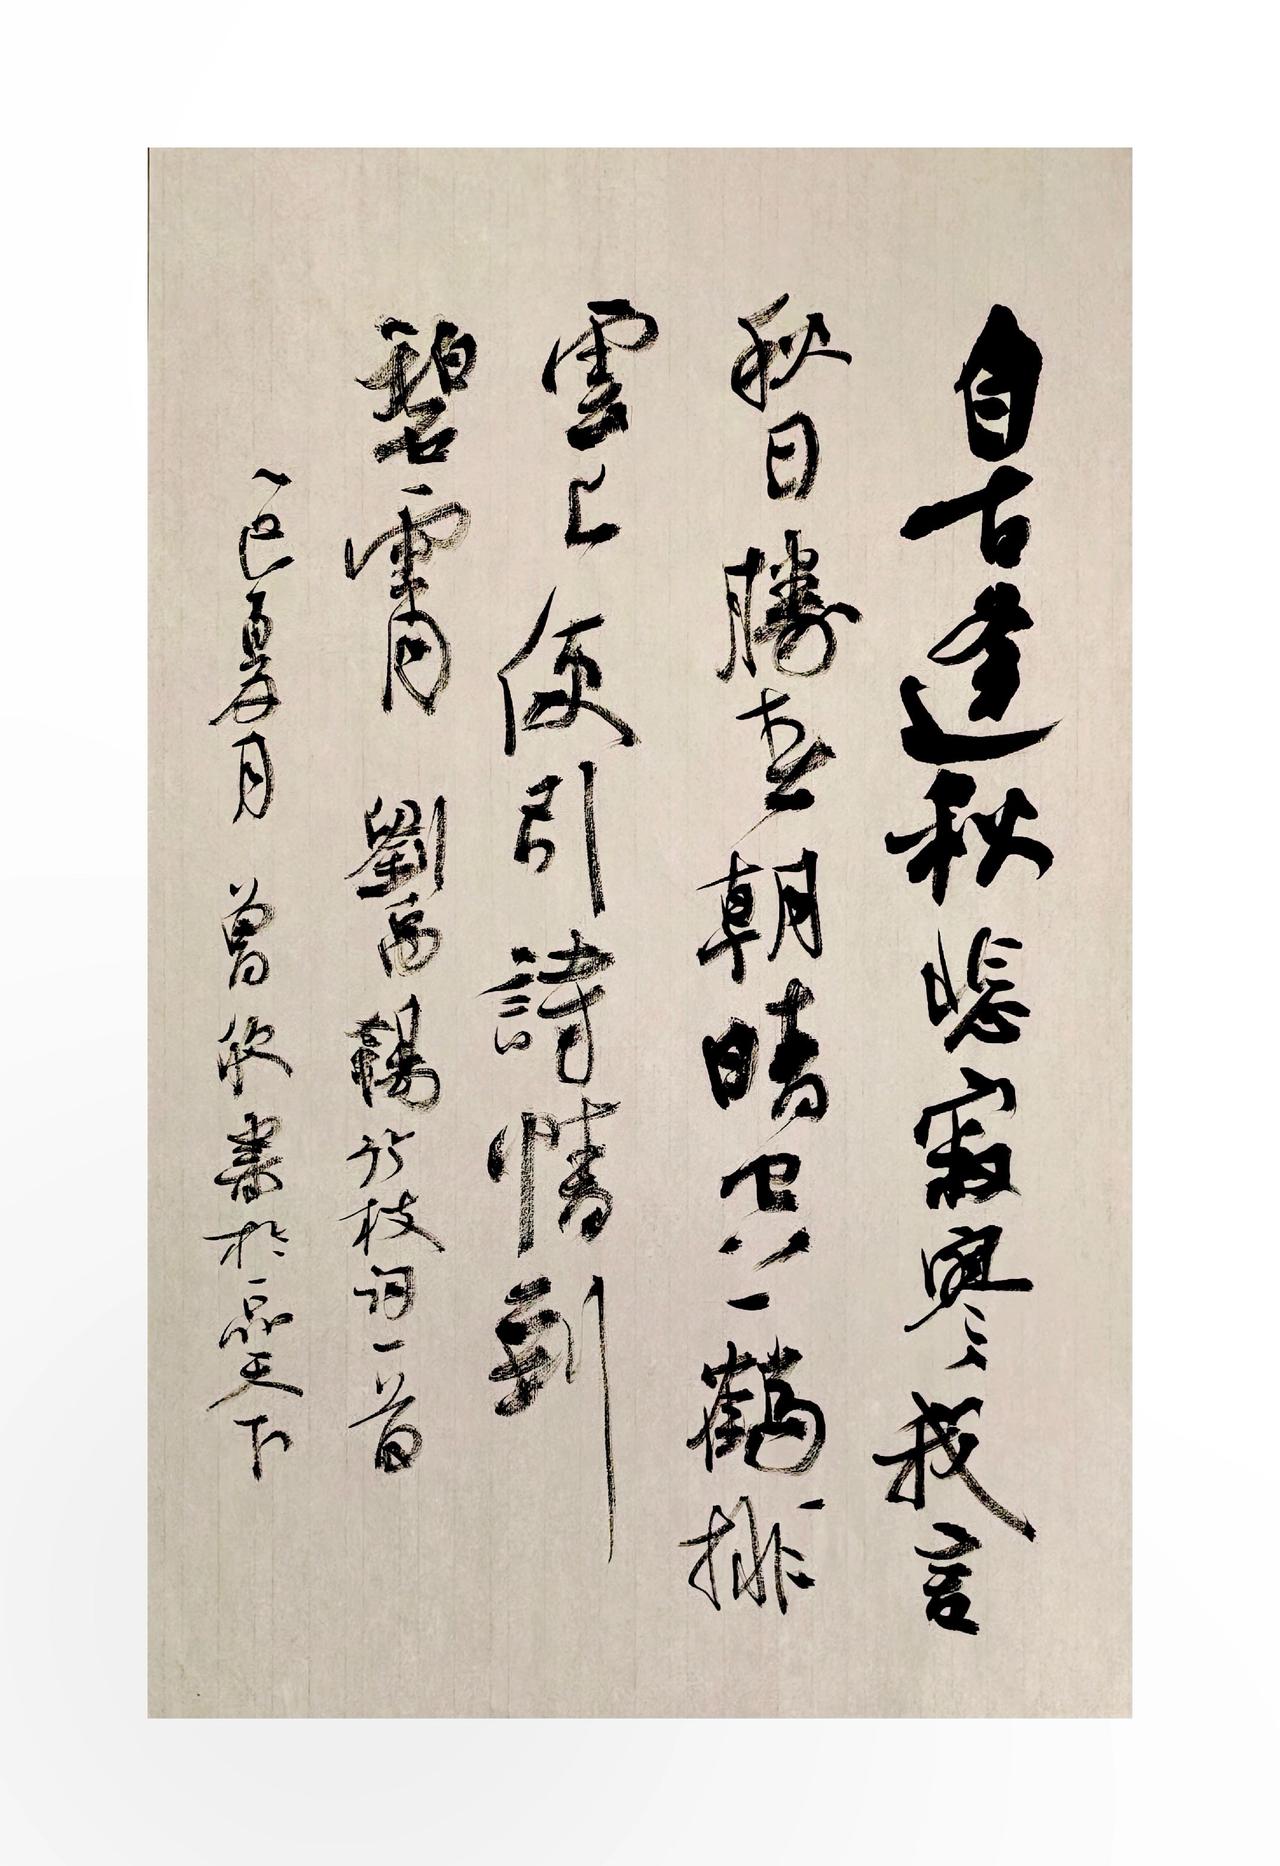 自古逢秋悲寂寥我言
秋日勝春朝晴空一鶴排
雲上便引詩情到
碧霄 劉禹錫竹枝詞一首
乙巳夏月 曾欣書於一品天下